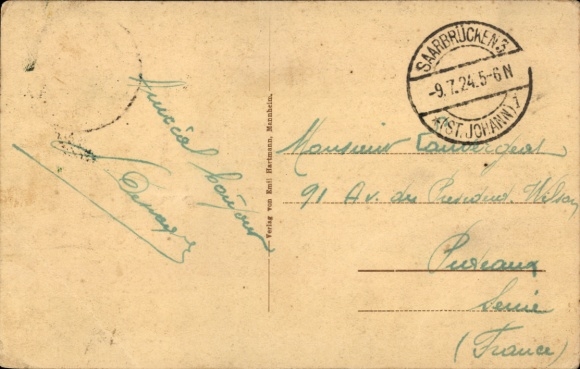 SAARBRÜCKEN 3
-9.7.24.5-6N
*(ST. JOHANN)*
Amical bonjour
Verlag von Emil Hartmann, Mannheim.
Monsieur Lauvergeat
91 Av. du President Wilson
Puteaux
Seine
(France)